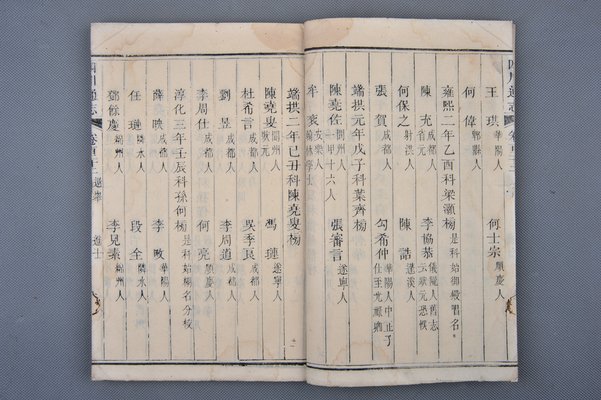 四川通志
王琪 華陽人 何士宗 順慶人
何偉 郫縣人
雍熙二年乙酉科梁灝榜 是科始御殿唱名
陳充 成都人 李協恭
何保之 射洪人 陳誥 蓬溪人
張賀 成都人 勾希仲 華陽人中止子
端拱元年戊子科葉齊榜
陳堯佐 閬州人 一甲十六人 張審言 遂寧人
牟袞 安樂人
端拱二年己丑科陳堯叟榜
陳堯叟 閬州人 狀元 馮璉 遂寧人
杜希言 成都人 吳季良 成都人
劉昱 成都人 李周道 成都人
李周仕 成都人 何亮 順慶人
淳化三年壬辰科孫何榜 是科始糊名分校
薛映 成都人 李畋 華陽人
任璡 鄰水人 段全 鄰水人
鄧餘慶 綿州人 李見素 綿州人
四川通志 選舉 進士